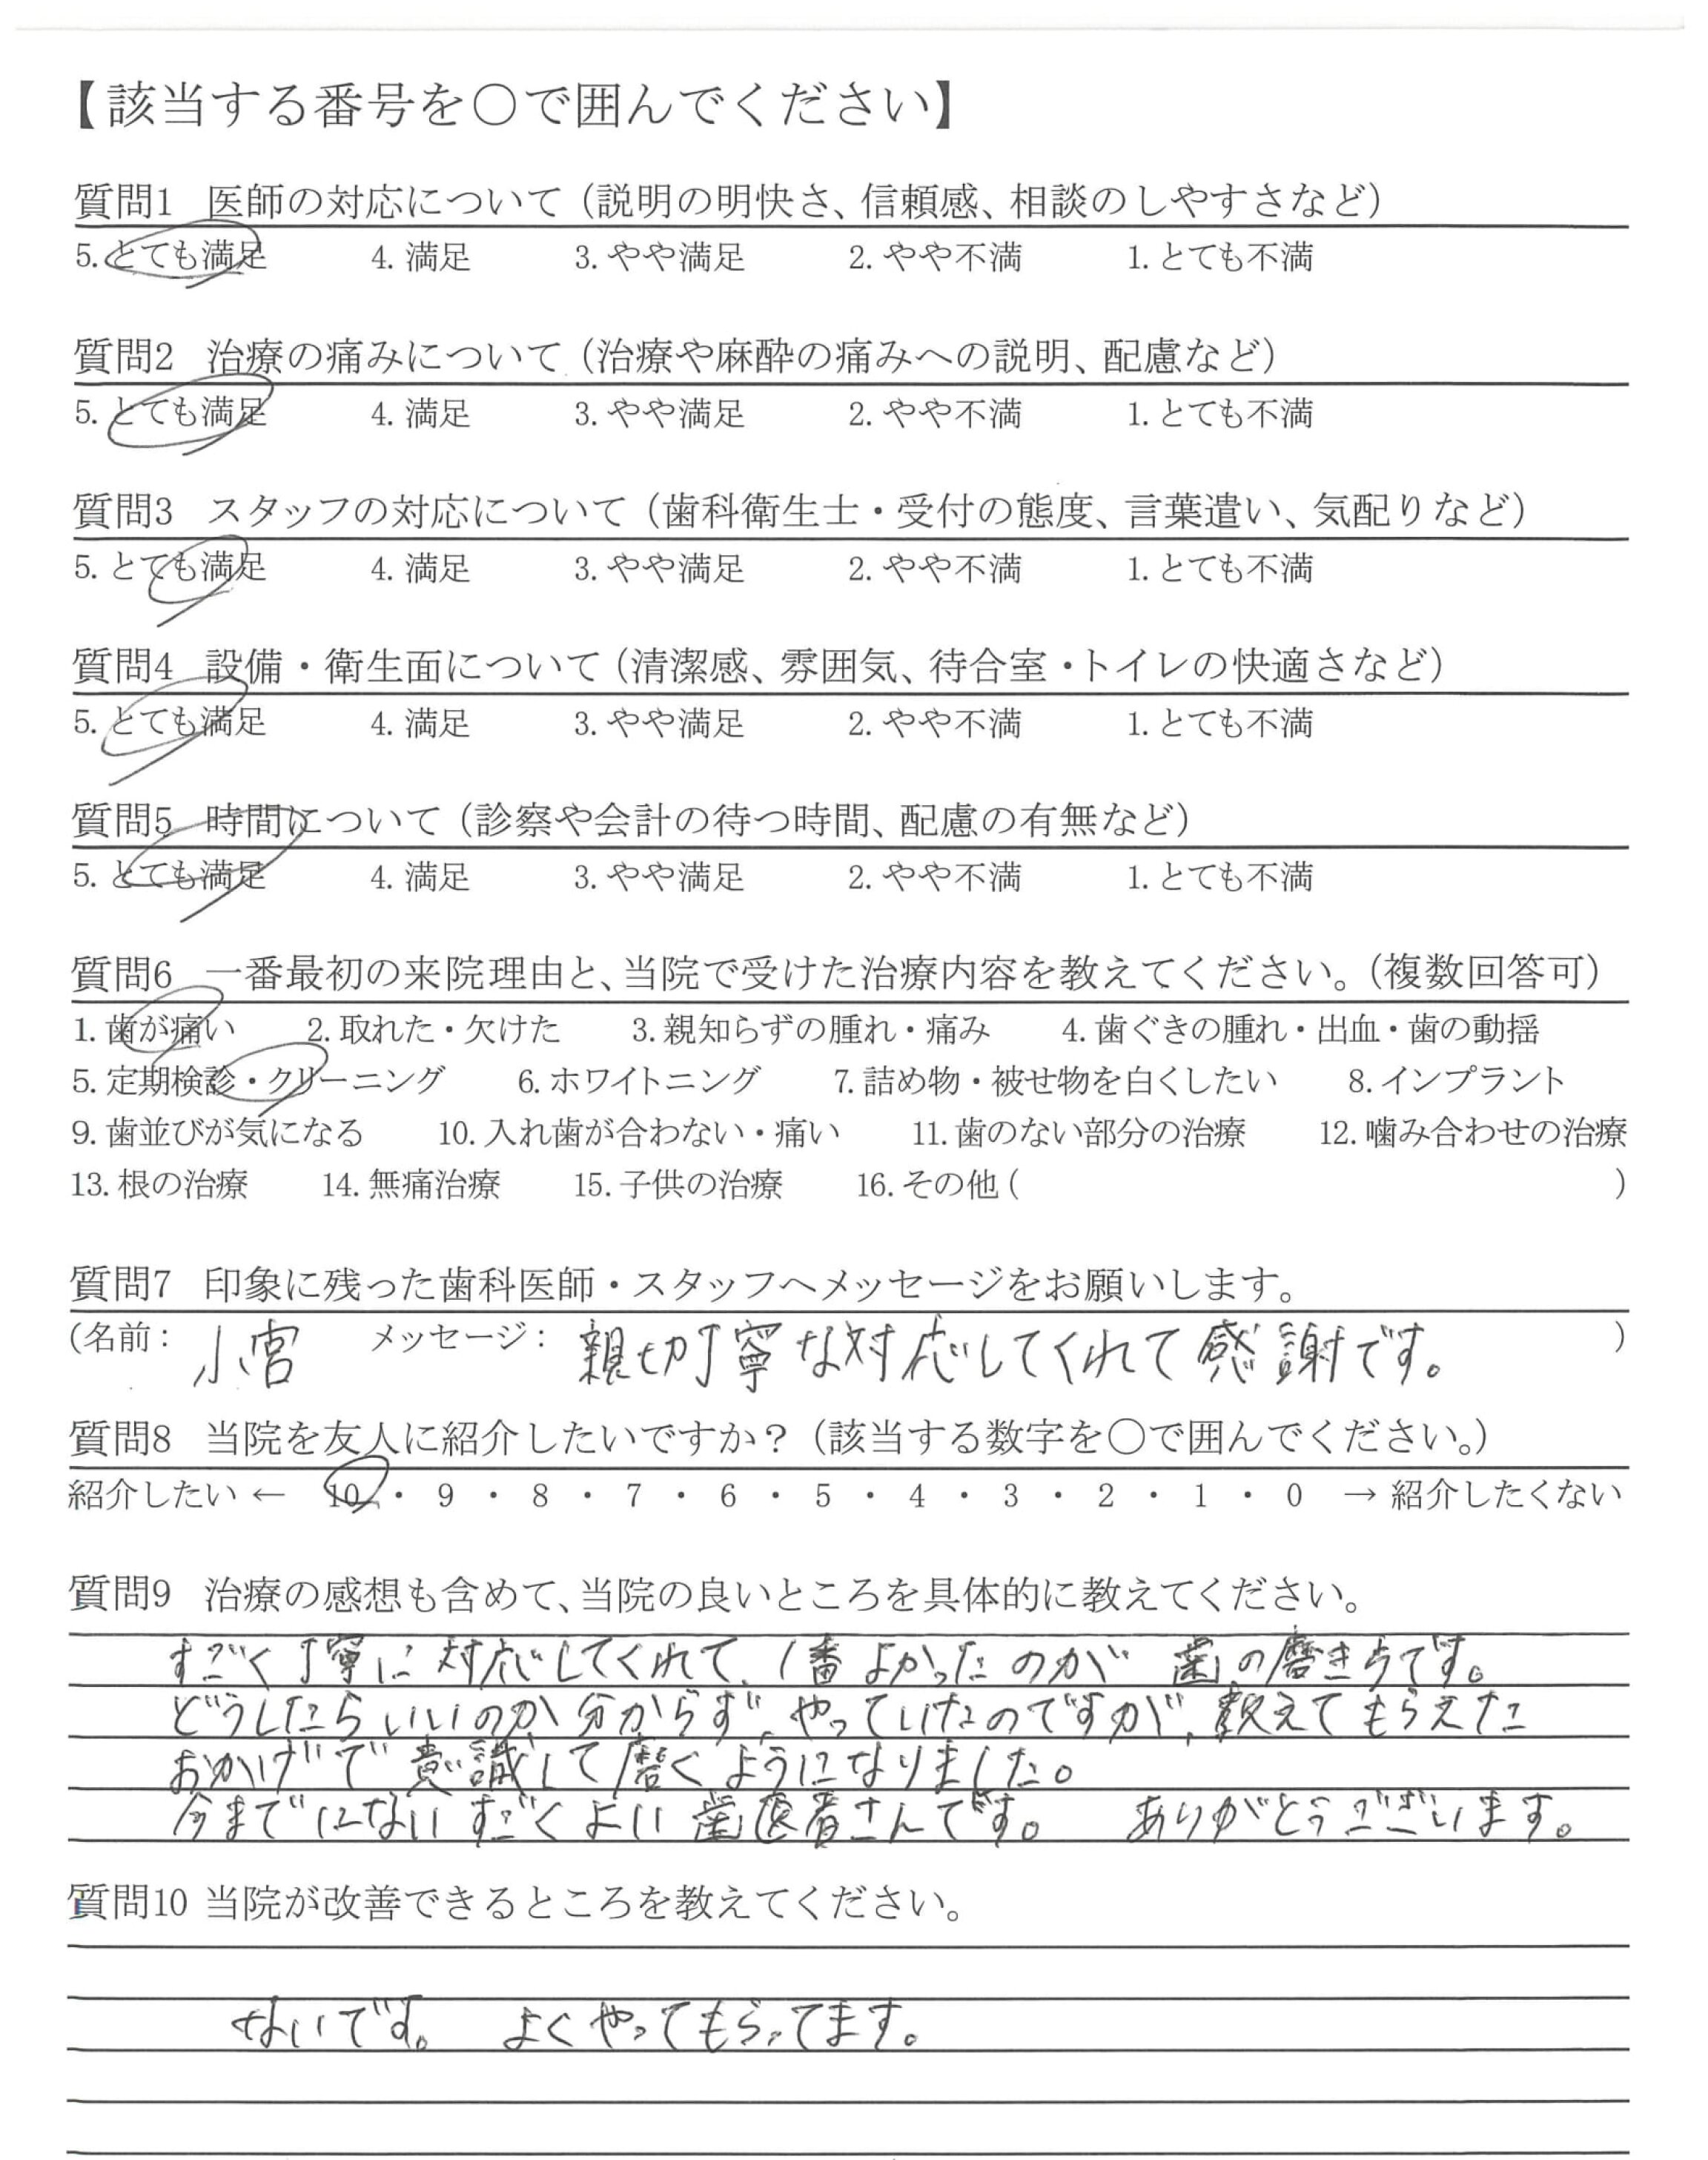 【該当する番号を○で囲んでください】
質問1 医師の対応について（説明の明快さ、信頼感、相談のしやすさなど）
5. とても満足 4. 満足 3. やや満足 2. やや不満 1. とても不満
質問2 治療の痛みについて（治療や麻酔の痛みへの説明、配慮など）
5. とても満足 4. 満足 3. やや満足 2. やや不満 1. とても不満
質問3 スタッフの対応について（歯科衛生士・受付の態度、言葉遣い、気配りなど）
5. とても満足 4. 満足 3. やや満足 2. やや不満 1. とても不満
質問4 設備・衛生面について（清潔感、雰囲気、待合室・トイレの快適さなど）
5. とても満足 4. 満足 3. やや満足 2. やや不満 1. とても不満
質問5 時間について（診察や会計の待つ時間、配慮の有無など）
5. とても満足 4. 満足 3. やや満足 2. やや不満 1. とても不満
質問6 一番最初の来院理由と、当院で受けた治療内容を教えてください。（複数回答可）
1. 歯が痛い 2. 取れた・欠けた 3. 親知らずの腫れ・痛み 4. 歯ぐきの腫れ・出血・歯の動揺
5. 定期検診・クリーニング 6. ホワイトニング 7. 詰め物・被せ物を白くしたい 8. インプラント
9. 歯並びが気になる 10. 入れ歯が合わない・痛い 11. 歯のない部分の治療 12. 噛み合わせの治療
13. 根の治療 14. 無痛治療 15. 子供の治療 16. その他 ( )
質問7 印象に残った歯科医師・スタッフへメッセージをお願いします。
(名前： 小宮 メッセージ： 親切丁寧な対応してくれて感謝です。 )
質問8 当院を友人に紹介したいですか？（該当する数字を○で囲んでください。）
紹介したい ← 10 ・ 9 ・ 8 ・ 7 ・ 6 ・ 5 ・ 4 ・ 3 ・ 2 ・ 1 ・ 0 → 紹介したくない
質問9 治療の感想も含めて、当院の良いところを具体的に教えてください。
すごく丁寧に対応してくれて、1番よかったのが歯の磨き方です。
どうしたらいいのか分からず、やっていたのですが、教えてもらえた
おかげで意識して磨くようになりました。
今までにないすごくよい歯医者さんです。 ありがとうございます。
質問10 当院が改善できるところを教えてください。
ないです。 よくやってもらってます。